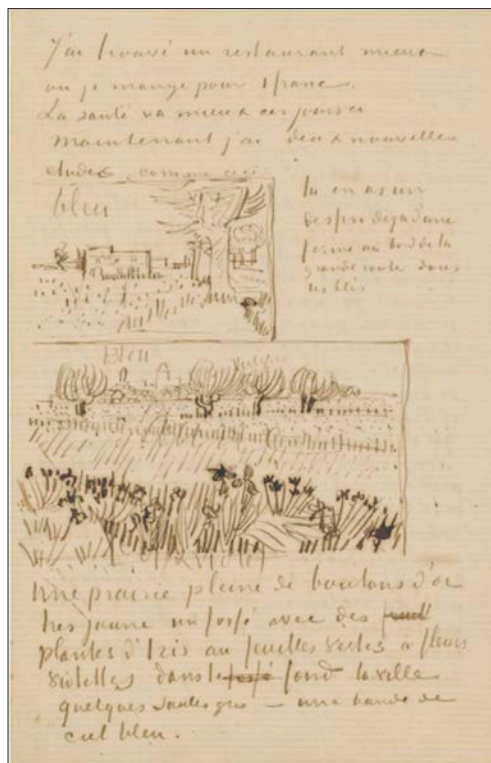 J'ai trouvé un restaurant mieux
ou je mange pour 1 franc.
La santé va mieux ces jours ci
Maintenant j'ai deux nouvelles
etudes comme ceci
bleu
tu en as un
dessin deja d'une
ferme au bord de la
grande route dans
les blés
Bleu
Une prairie pleine de boutons d'or
tres jaune un fossé avec des
plantes d'Iris au feuilles vertes à fleurs
violettes dans le fond la ville
quelques saules gris – une bande de
ciel bleu.